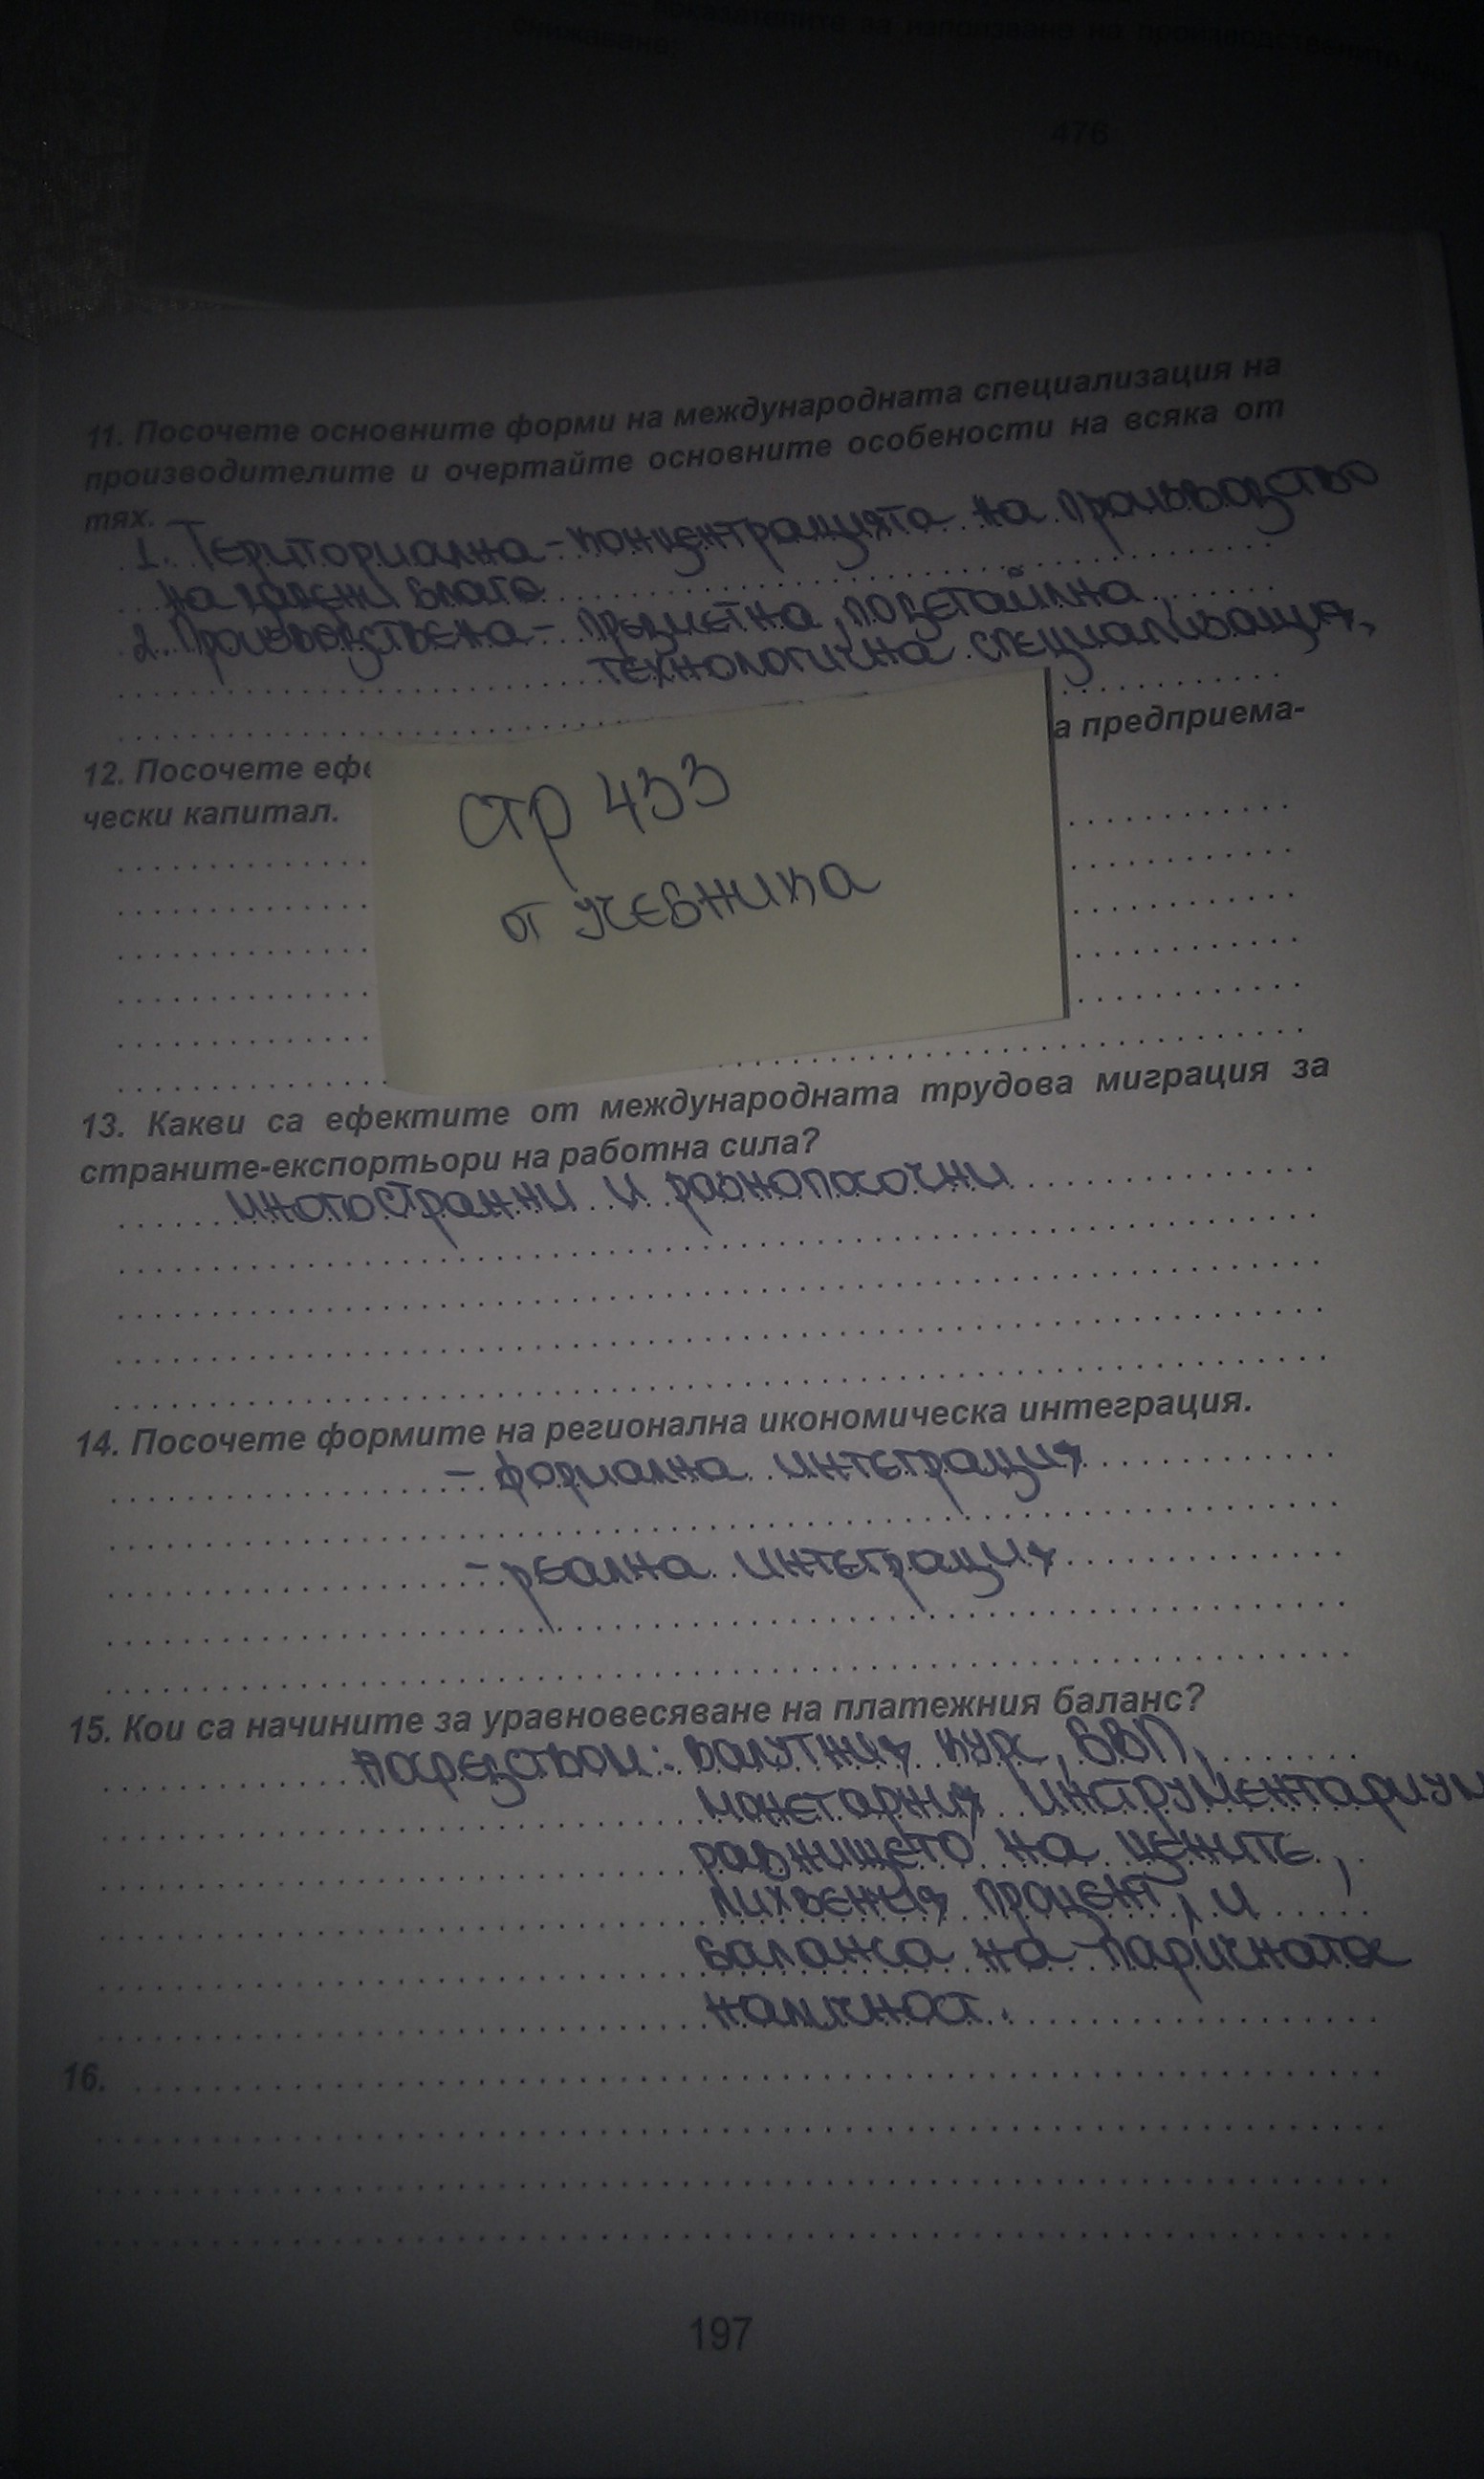 показателите за използване на производствените
снижаване:
476
11. Посочете основните форми на международната специализация на
производителите и очертайте основните особености на всяка от
тях.
1. Териториална - концентрацията на производство
на дадени блага
2. Производствена - предметна, подетайлна,
технологична специализация,
12. Посочете ефе
а предприема-
чески капитал.
стр 433
от учебника
13. Какви са ефектите от международната трудова миграция за
страните-експортьори на работна сила?
многостранни и разнопосочни
14. Посочете формите на регионална икономическа интеграция.
- формална интеграция
- реална интеграция
15. Кои са начините за уравновесяване на платежния баланс?
посредством: валутния курс, БВП,
монетарния инструментариум
равнището на цените,
лихвения процент, и
баланса на паричната
наличност.
16.
197